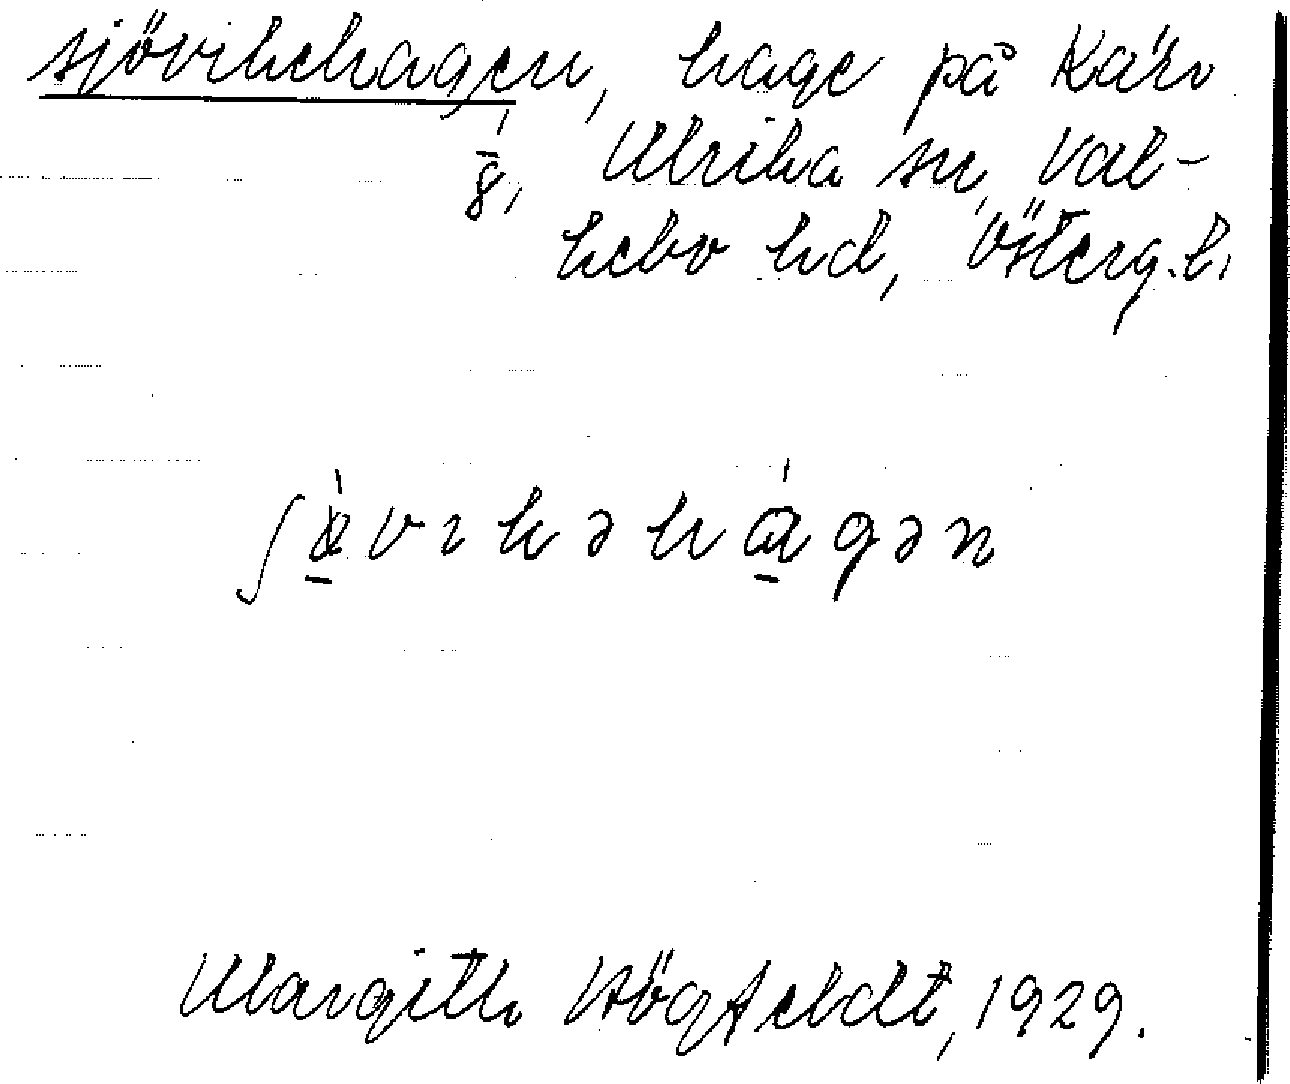 sjövikehagen, hage på Kärr
1/8, Ulrika sn, Val-
kebo hd, Österg.l.
ʃövɩkəhagən
Margith Högfeldt, 1929.